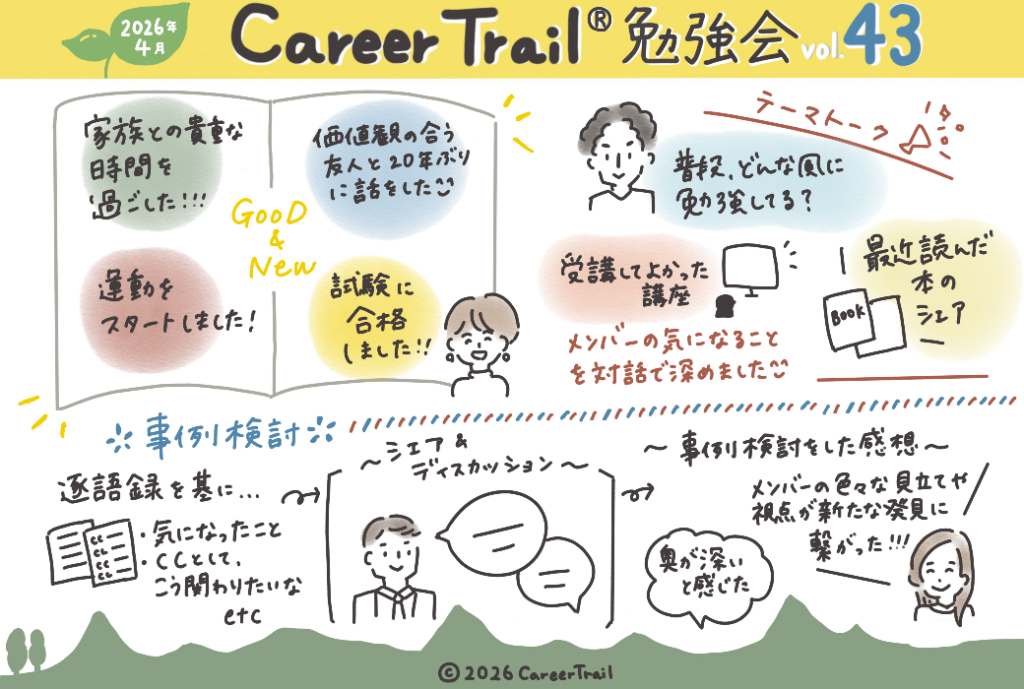 2026年
4月
Career Trail® 勉強会 vol.43
家族との貴重な
時間を
過ごした!!!
価値観の合う
友人と20年ぶり
に話をした
GOOD
&
New
運動を
スタートしました!
試験に
合格
しました!!
テーマトーク
普段、どんな風に
勉強してる?
受講してよかった
講座
最近読んだ
本の
シェア
BOOK
メンバーの気になること
を対話で深めました
事例検討
逐語録を基に...
CC
CL
CC
CL
・気になったこと
・CCとして、
こう関わりたいな
etc
〜シェア&
ディスカッション〜
〜事例検討をした感想〜
メンバーの色々な見立てや
視点が新たな発見に
繋がった!!!
奥が深い
と感じた
©2026 CareerTrail